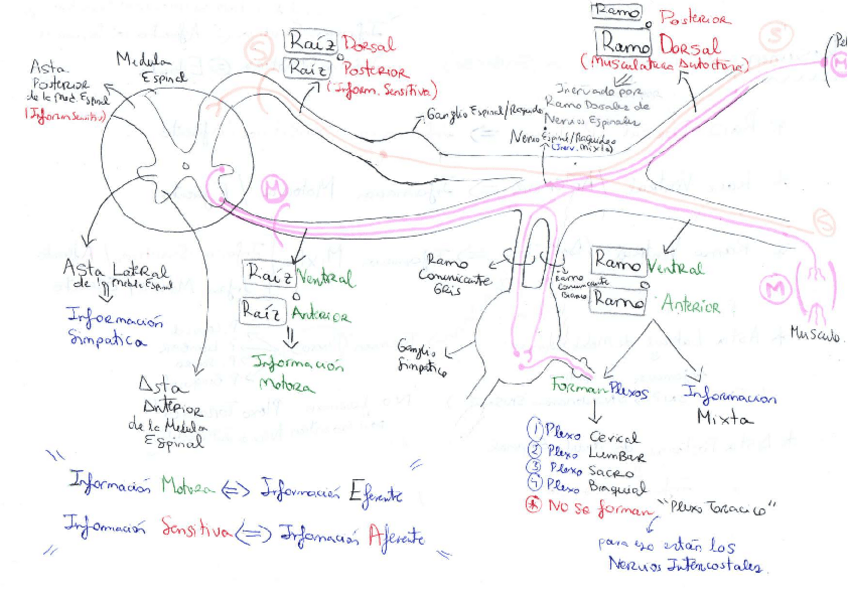 Ramo o Posterior
Ramo Dorsal
(Musculatura Autoctona)
Inervado por
Ramo Dorsales de
Nervios Espinales
Nervio Espinal/Raquideo
(Inerv. Mixta)
S
M
Raíz Dorsal
o
Raíz Posterior
(Inform. Sensitiva)
S
Medula
Espinal
Asta
Posterior
de la Med. Espinal
(Inform Sensitiva)
Ganglio Espinal/Raquideo
M
Asta Lateral
de la Medula Espinal
Información
Simpatica
Raíz Ventral
o
Raíz Anterior
Información
Motora
Asta
Anterior
de la Medula
Espinal
Ramo
Comunicante
Gris
Ramo
Comunicante
Blanco
Ganglio
Simpatico
Ramo Ventral
o
Ramo Anterior
S
M
Musculo
Forman Plexos
Informacion
Mixta
1 Plexo Cervical
2 Plexo Lumbar
3 Plexo Sacro
4 Plexo Braquial
* No se forman "Plexo Toracico"
para eso están los
Nervios Intercostales.
" Información Motora <=> Información Eferente "
" Información Sensitiva <=> Información Aferente "